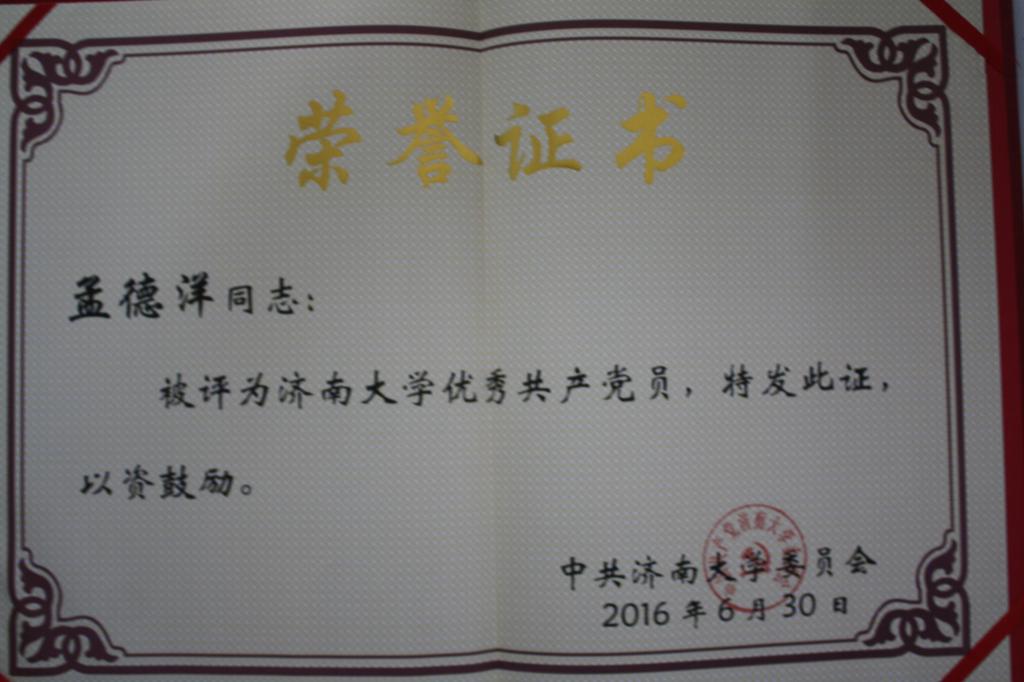 荣誉证书
孟德洋同志：
被评为济南大学优秀共产党员，特发此证，
以资鼓励。
中共济南大学委员会
2016年6月30日